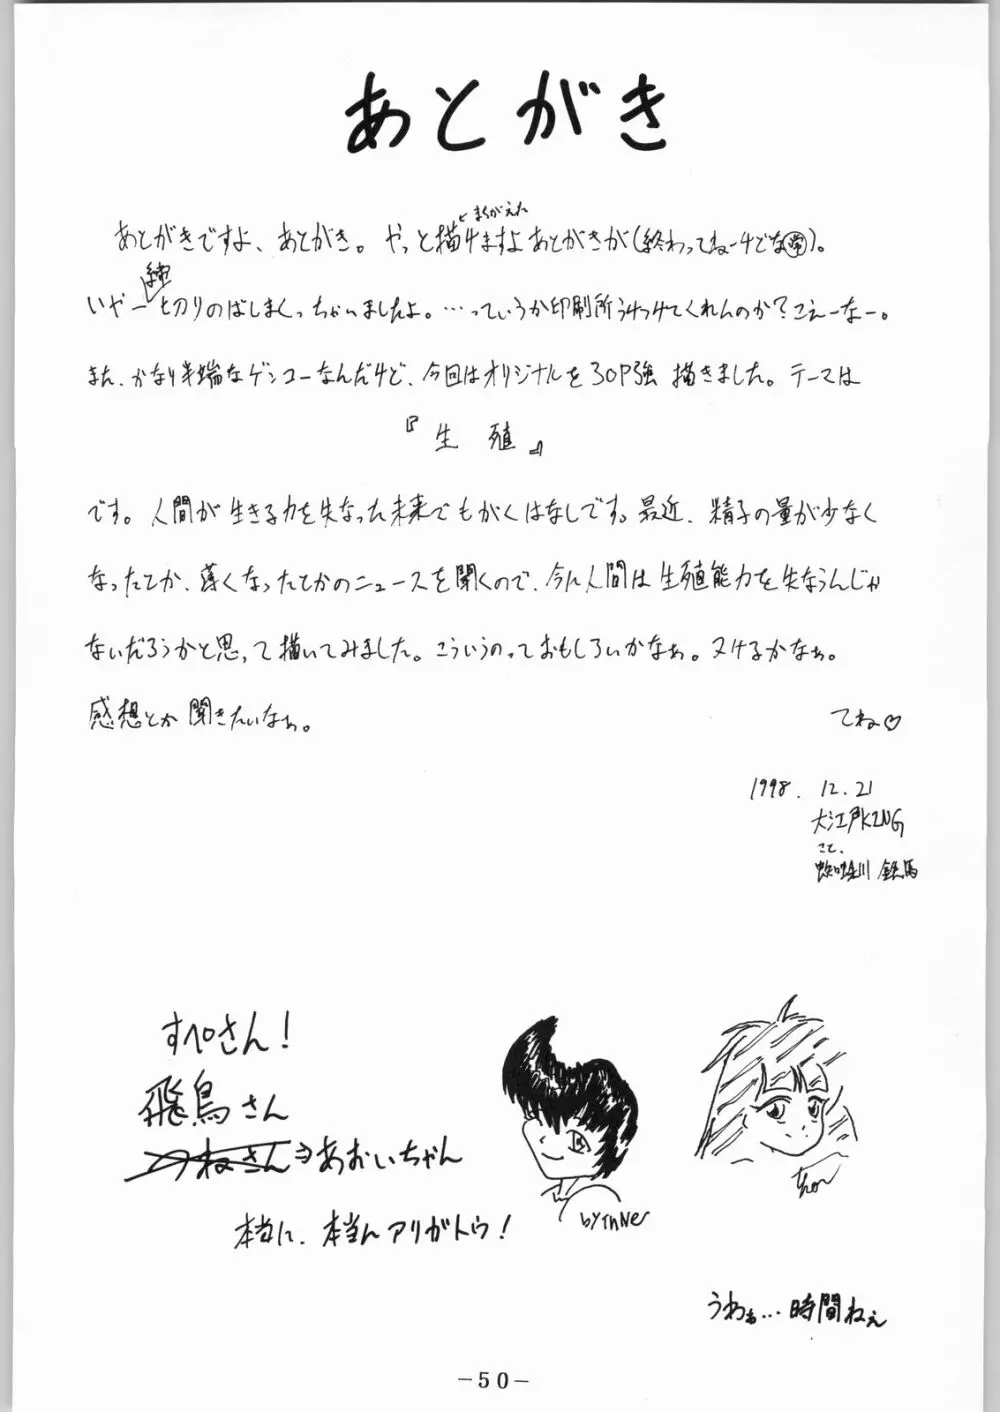 あとがき
まちがえた
あとがきですよ、あとがき。やっと描けますよあとがきが(終わってねーけどな㊙)。
純
いやー〆切りのばしまくっちゃいましたよ。…っていうか印刷所うけつけてくれんのか?こえーなー。
また、かなり半端なゲンコーなんだけど、今回はオリジナルを30P強 描きました。テーマは
『生 殖』
です。人間が生きる力を失なった未来でもがくはなしです。最近、精子の量が少なく
なったてか、薄くなったてかのニュースを聞くので、今に人間は生殖能力を失なうんじゃ
ないだろうかと思って描いてみました。こういうのっておもしろいかなぁ。ヌけるかなぁ。
感想とか聞きたいなぁ。
てね♡
1998. 12. 21
大江戸KING
こと、
川 鉄馬
すぺさん!
飛鳥さん
つねさん⇒あおいちゃん
本当に、本当にアリガトウ!
by InNer
うわぁ…時間ねぇ
-50-